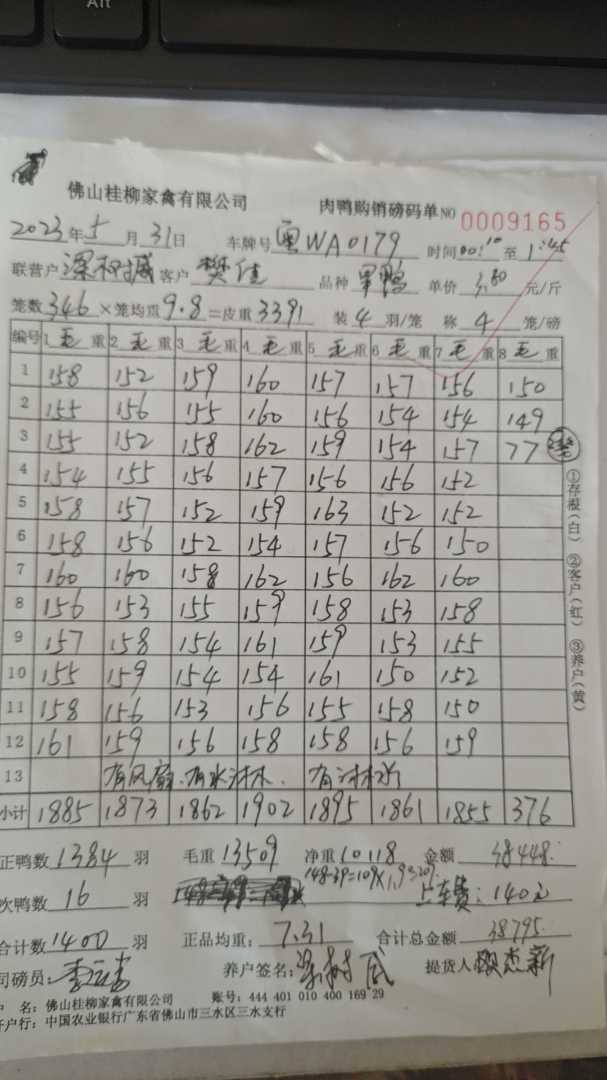 Alt
佛山桂柳家禽有限公司 肉鸭购销磅码单 NO 0009165
2023年5月31日 车牌号 粤WA0179 时间 00:10 至 1:45
联营户 客户 樊佳 品种 单价 3.80 元/斤
笼数 346 ×笼均重 9.8 =皮重 3391 装 4 羽/笼 称 4 笼/磅
编号 1 毛 重 2 毛 重 3 毛 重 4 毛 重 5 毛 重 6 毛 重 7 毛 重 8 毛 重
1 158 152 159 160 157 157 156 150
2 155 156 155 160 156 154 154 149
3 155 152 158 162 159 154 157 77
4 154 155 156 157 156 156 152
5 158 157 152 159 163 152 152
6 158 156 152 154 157 156 150
7 160 160 158 162 156 162 160
8 156 153 155 159 158 153 158
9 157 158 154 161 159 153 155
10 155 159 154 154 161 150 152
11 158 156 153 156 155 158 150
12 161 159 156 158 158 156 159
13 有风扇.有水淋水. 有淋水
小计 1885 1873 1862 1902 1895 1861 1855 376
①存根(白) ②客户(红) ③养户(黄)
正鸭数 1384 羽 毛重 13509 净重 10118 金额 38448
148-39=109×1.9=207
次鸭数 16 羽 上车费: 140元
合计数 1400 羽 正品均重: 7.31 合计总金额 38795
司磅员: 养户签名: 提货人
户 名: 佛山桂柳家禽有限公司 账号: 444 401 010 400 169 29
开户行: 中国农业银行广东省佛山市三水区三水支行